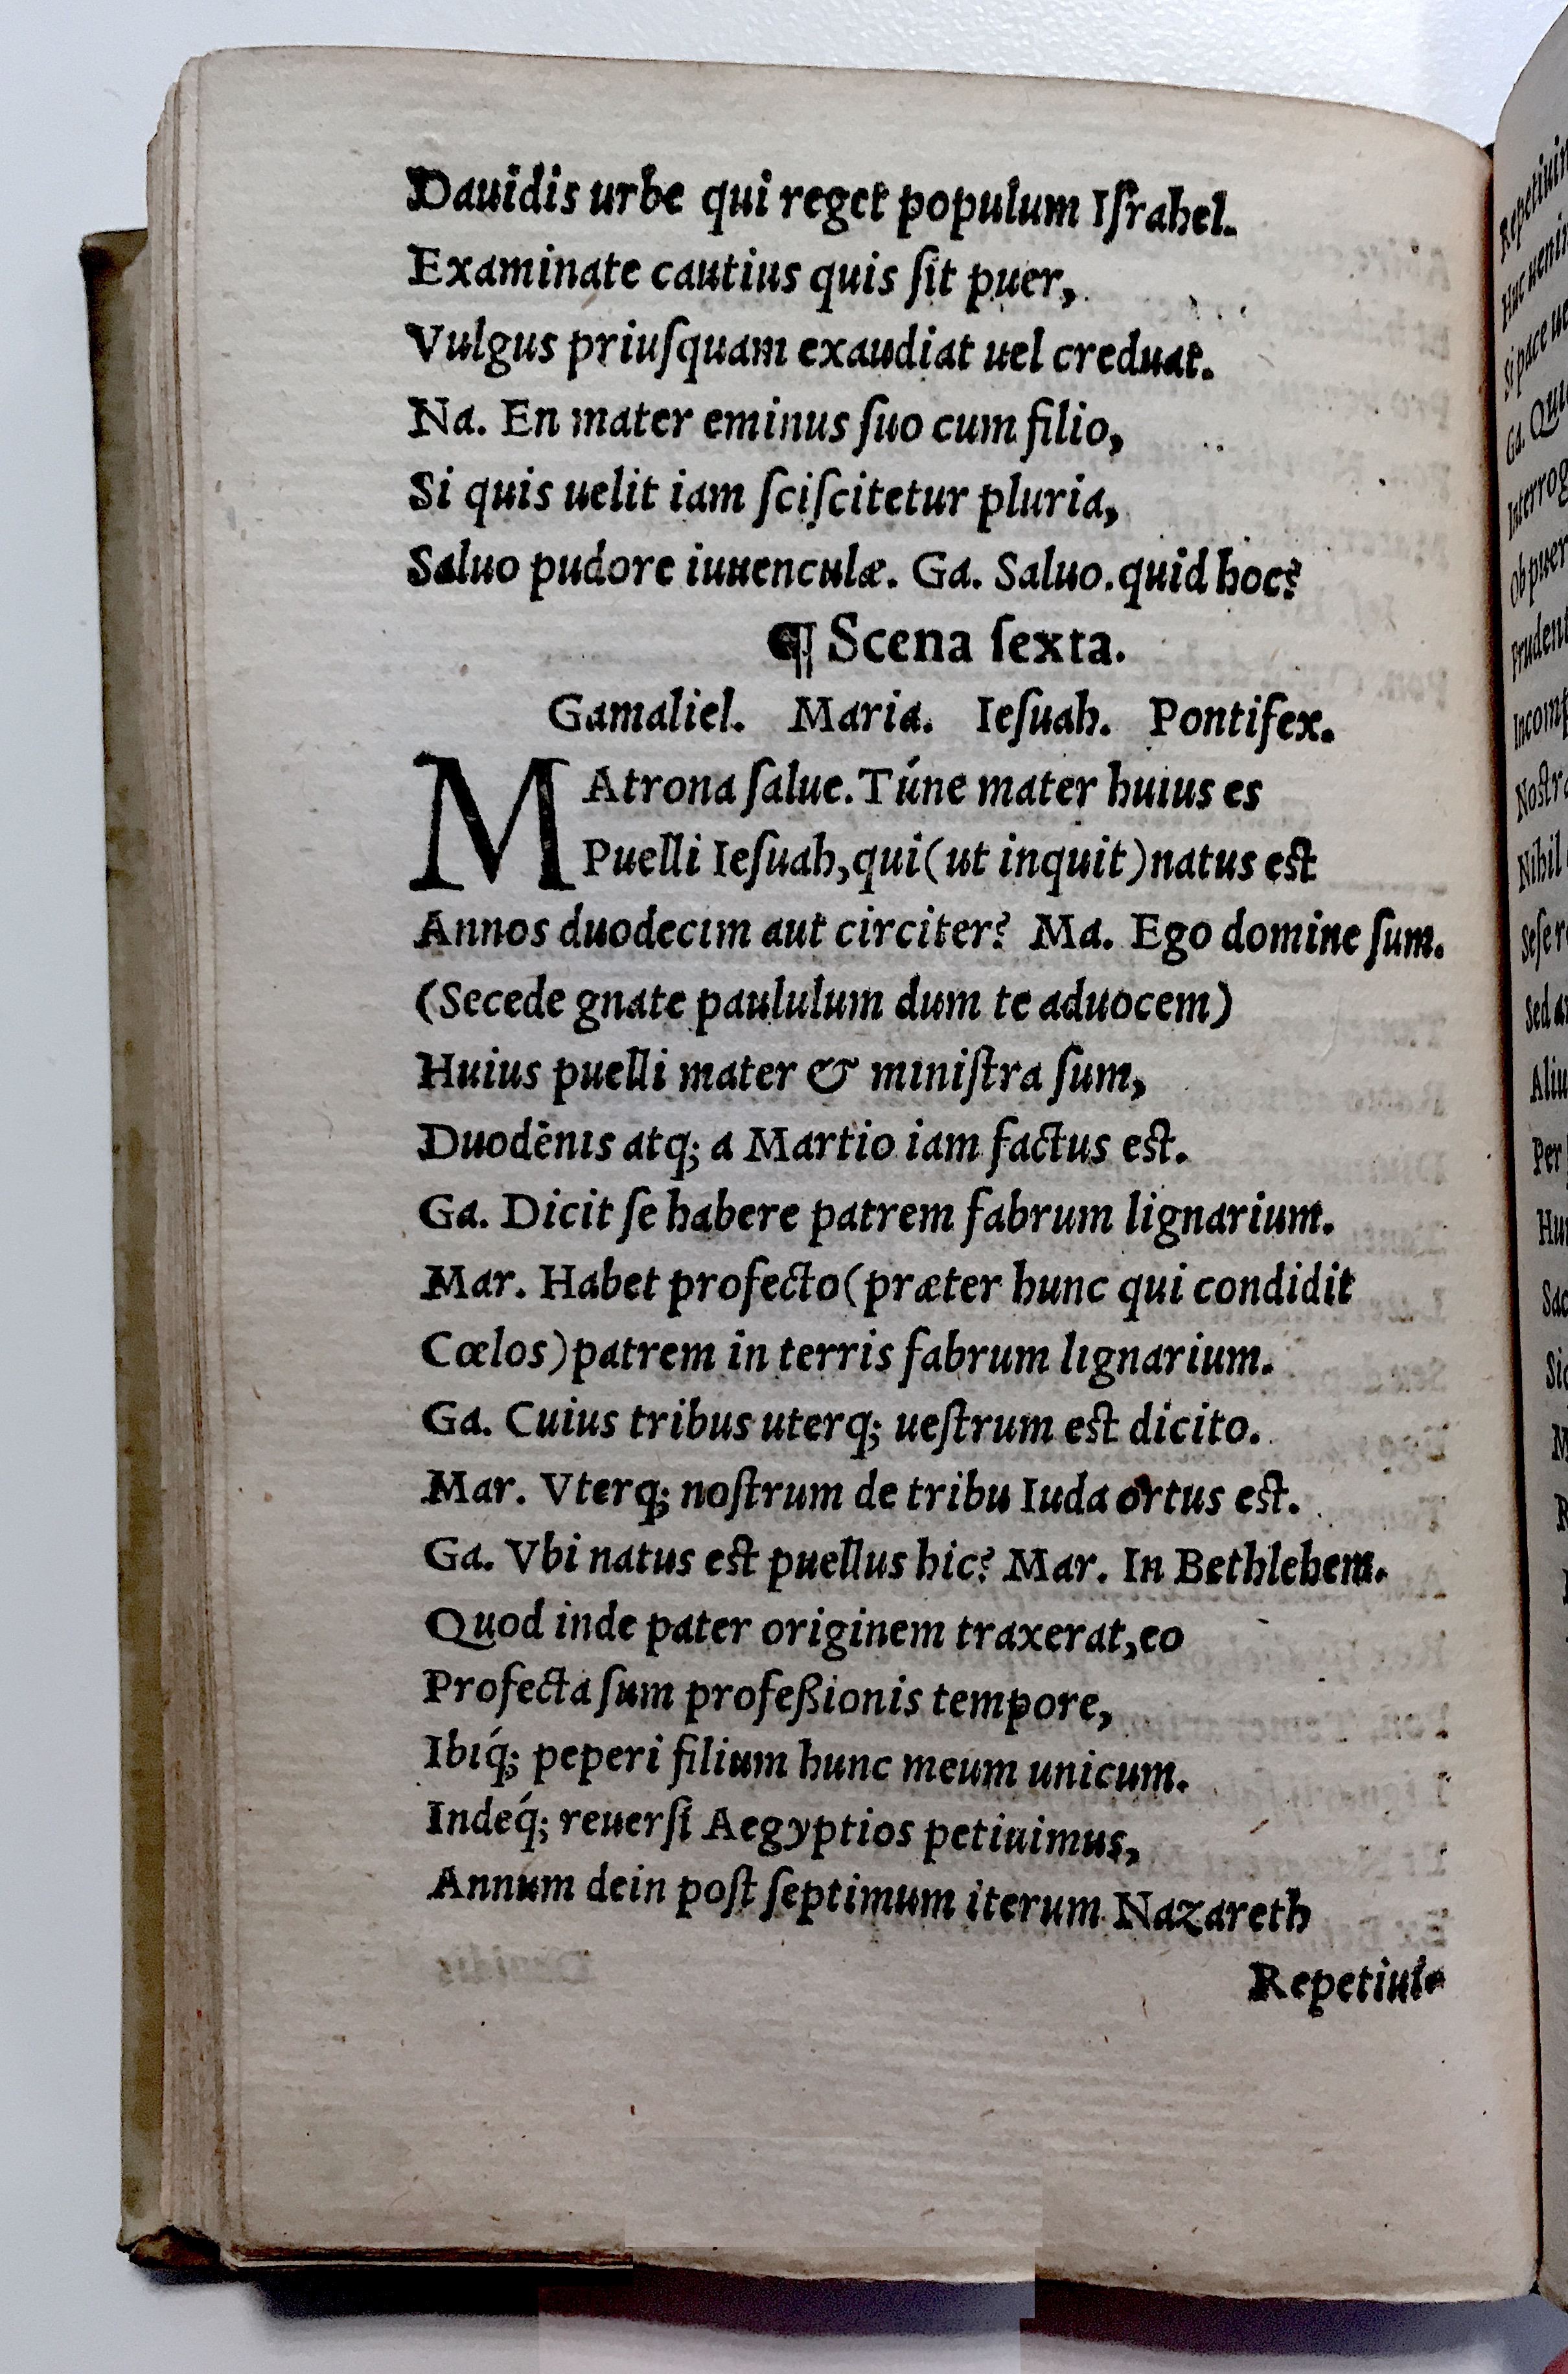 Dauidis urbe qui reget populum Iſrahel.
Examinate cautius quis ſit puer,
Vulgus priuſquam exaudiat uel creduat.
Na. En mater eminus ſuo cum filio,
Si quis uelit iam ſciſcitetur pluria,
Saluo pudore iuuenculæ. Ga. Saluo. quid hoc?
¶ Scena ſexta.
Gamaliel. Maria. Ieſuah. Pontifex.
MAtrona ſalue. Túne mater huius es
Puelli Ieſuah, qui (ut inquit) natus est
Annos duodecim aut circiter? Ma. Ego domine ſum.
(Secede gnate paululum dum te aduocem)
Huius puelli mater & miniſtra ſum,
Duodēnis atq; a Martio iam factus est.
Ga. Dicit ſe habere patrem fabrum lignarium.
Mar. Habet profecto (præter hunc qui condidit
Cœlos) patrem in terris fabrum lignarium.
Ga. Cuius tribus uterq; ueſtrum est dicito.
Mar. Vterq; noſtrum de tribu Iuda ortus est.
Ga. Vbi natus est puellus hic? Mar. In Bethlehem.
Quod inde pater originem traxerat, eo
Profecta ſum profeßionis tempore,
Ibiq́; peperi filium hunc meum unicum.
Indeq́; reuerſi Aegyptios petiuimus,
Annum dein poſt ſeptimum iterum Nazareth
Repetiui-
Repetiuim
Huc uenim
Si pace ue
Ga. Qui
Interrog
Ob puer
Prudent
Incomp
Noſtra
Nihil
Seſe re
Sed a
Aliu
Per
Hu
Sac
Sic
M